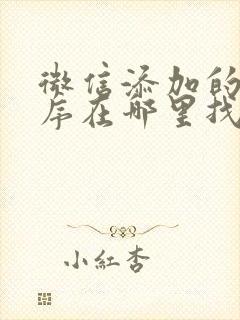 微信添加的
序在哪里找
小红杏